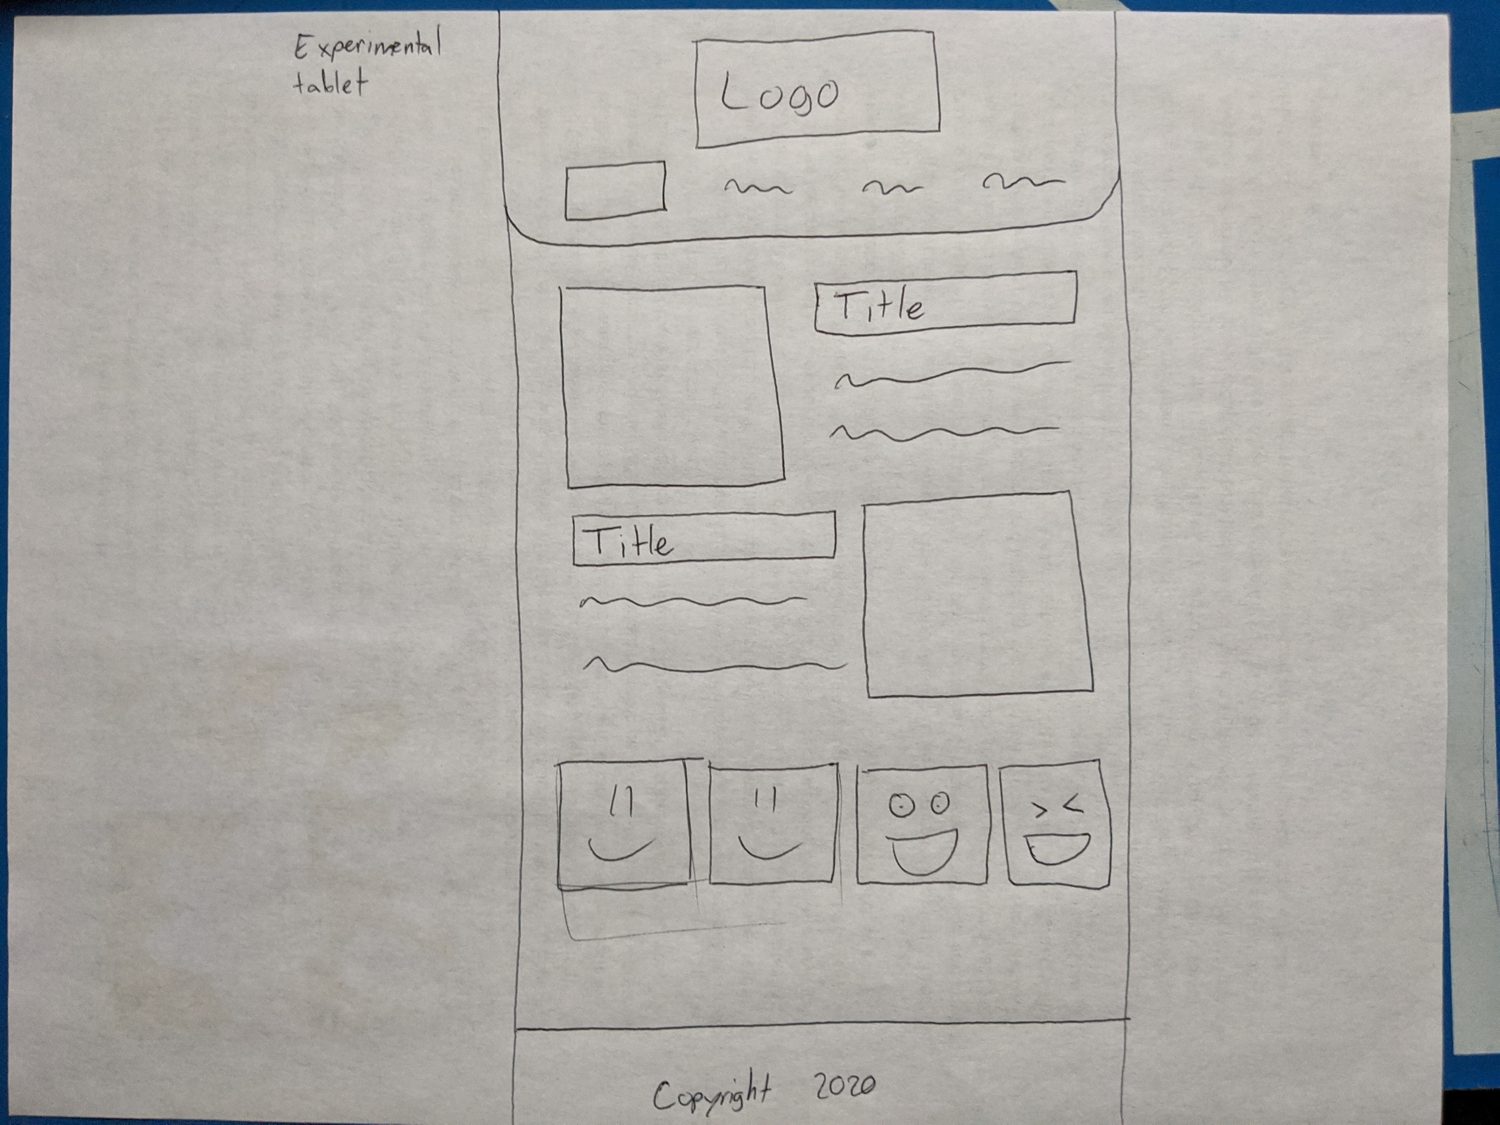 Experimental
tablet
Logo
Title
Title
Copyright 2020